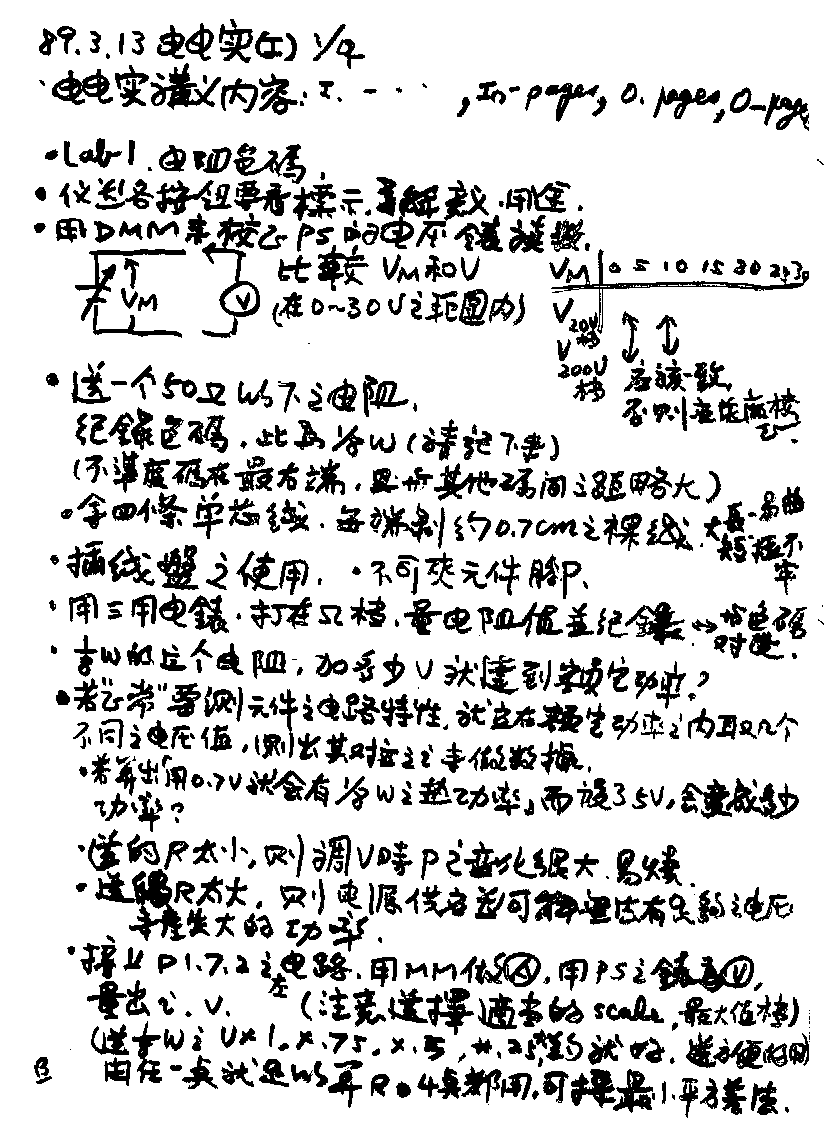 89.3.13 电电实(I) 1/4
·电电实講义内容: I. - · · · , In-pages, O. pages, O-page
·Lab1. 电阻色码.
·仪器各按钮要看標示, 了解意义、用途.
·用DMM来校正PS的电压錶读数.
比較 VM和V
(在0~30V之範圍内)
VM 0 5 10 15 20 25 30
V 20V档
V 200V档
应该一致,
否则在使麻接
VM
V
·選一个50Ω以下之电阻,
纪錄色码, 此為 1/8W (請记下来)
(不準度码在最右端, 且与其他码间之距略大)
·拿四條单芯线, 每端剥约0.7cm之裸线. 太長-易曲
短插不牢
·插线盤之使用. ·不可夾元件腳.
·用三用电錶, 打在Ω档, 量电阻值並纪錄 ↔ 与色码
对應.
·1/8W的这个电阻, 加多少V就達到额定功率?
·若"正常"要測元件之电路特性, 就应在额定功率之内取几个
不同之电压值, 測出其对应之i来做数據.
·若算出「用0.7V就会有1/8W之热功率」而旋35V, 会变成多少
功率?
·選的R太小, 则調V時P之变化很大, 易燒.
·選得R太大, 则电源供应器可能無法有足夠之电压
来產生大的功率.
·接上P1.7.2左之电路. 用MM做Ⓐ, 用PS之錶為Ⓥ,
量出i, V. (注意選擇適当的scale, 最大值档)
(選1/8W之V×1, ×.75, ×.5, ×.25等約就好, 選方便的即
由任一点就足以算R。4点都用, 可採最小平方差法.